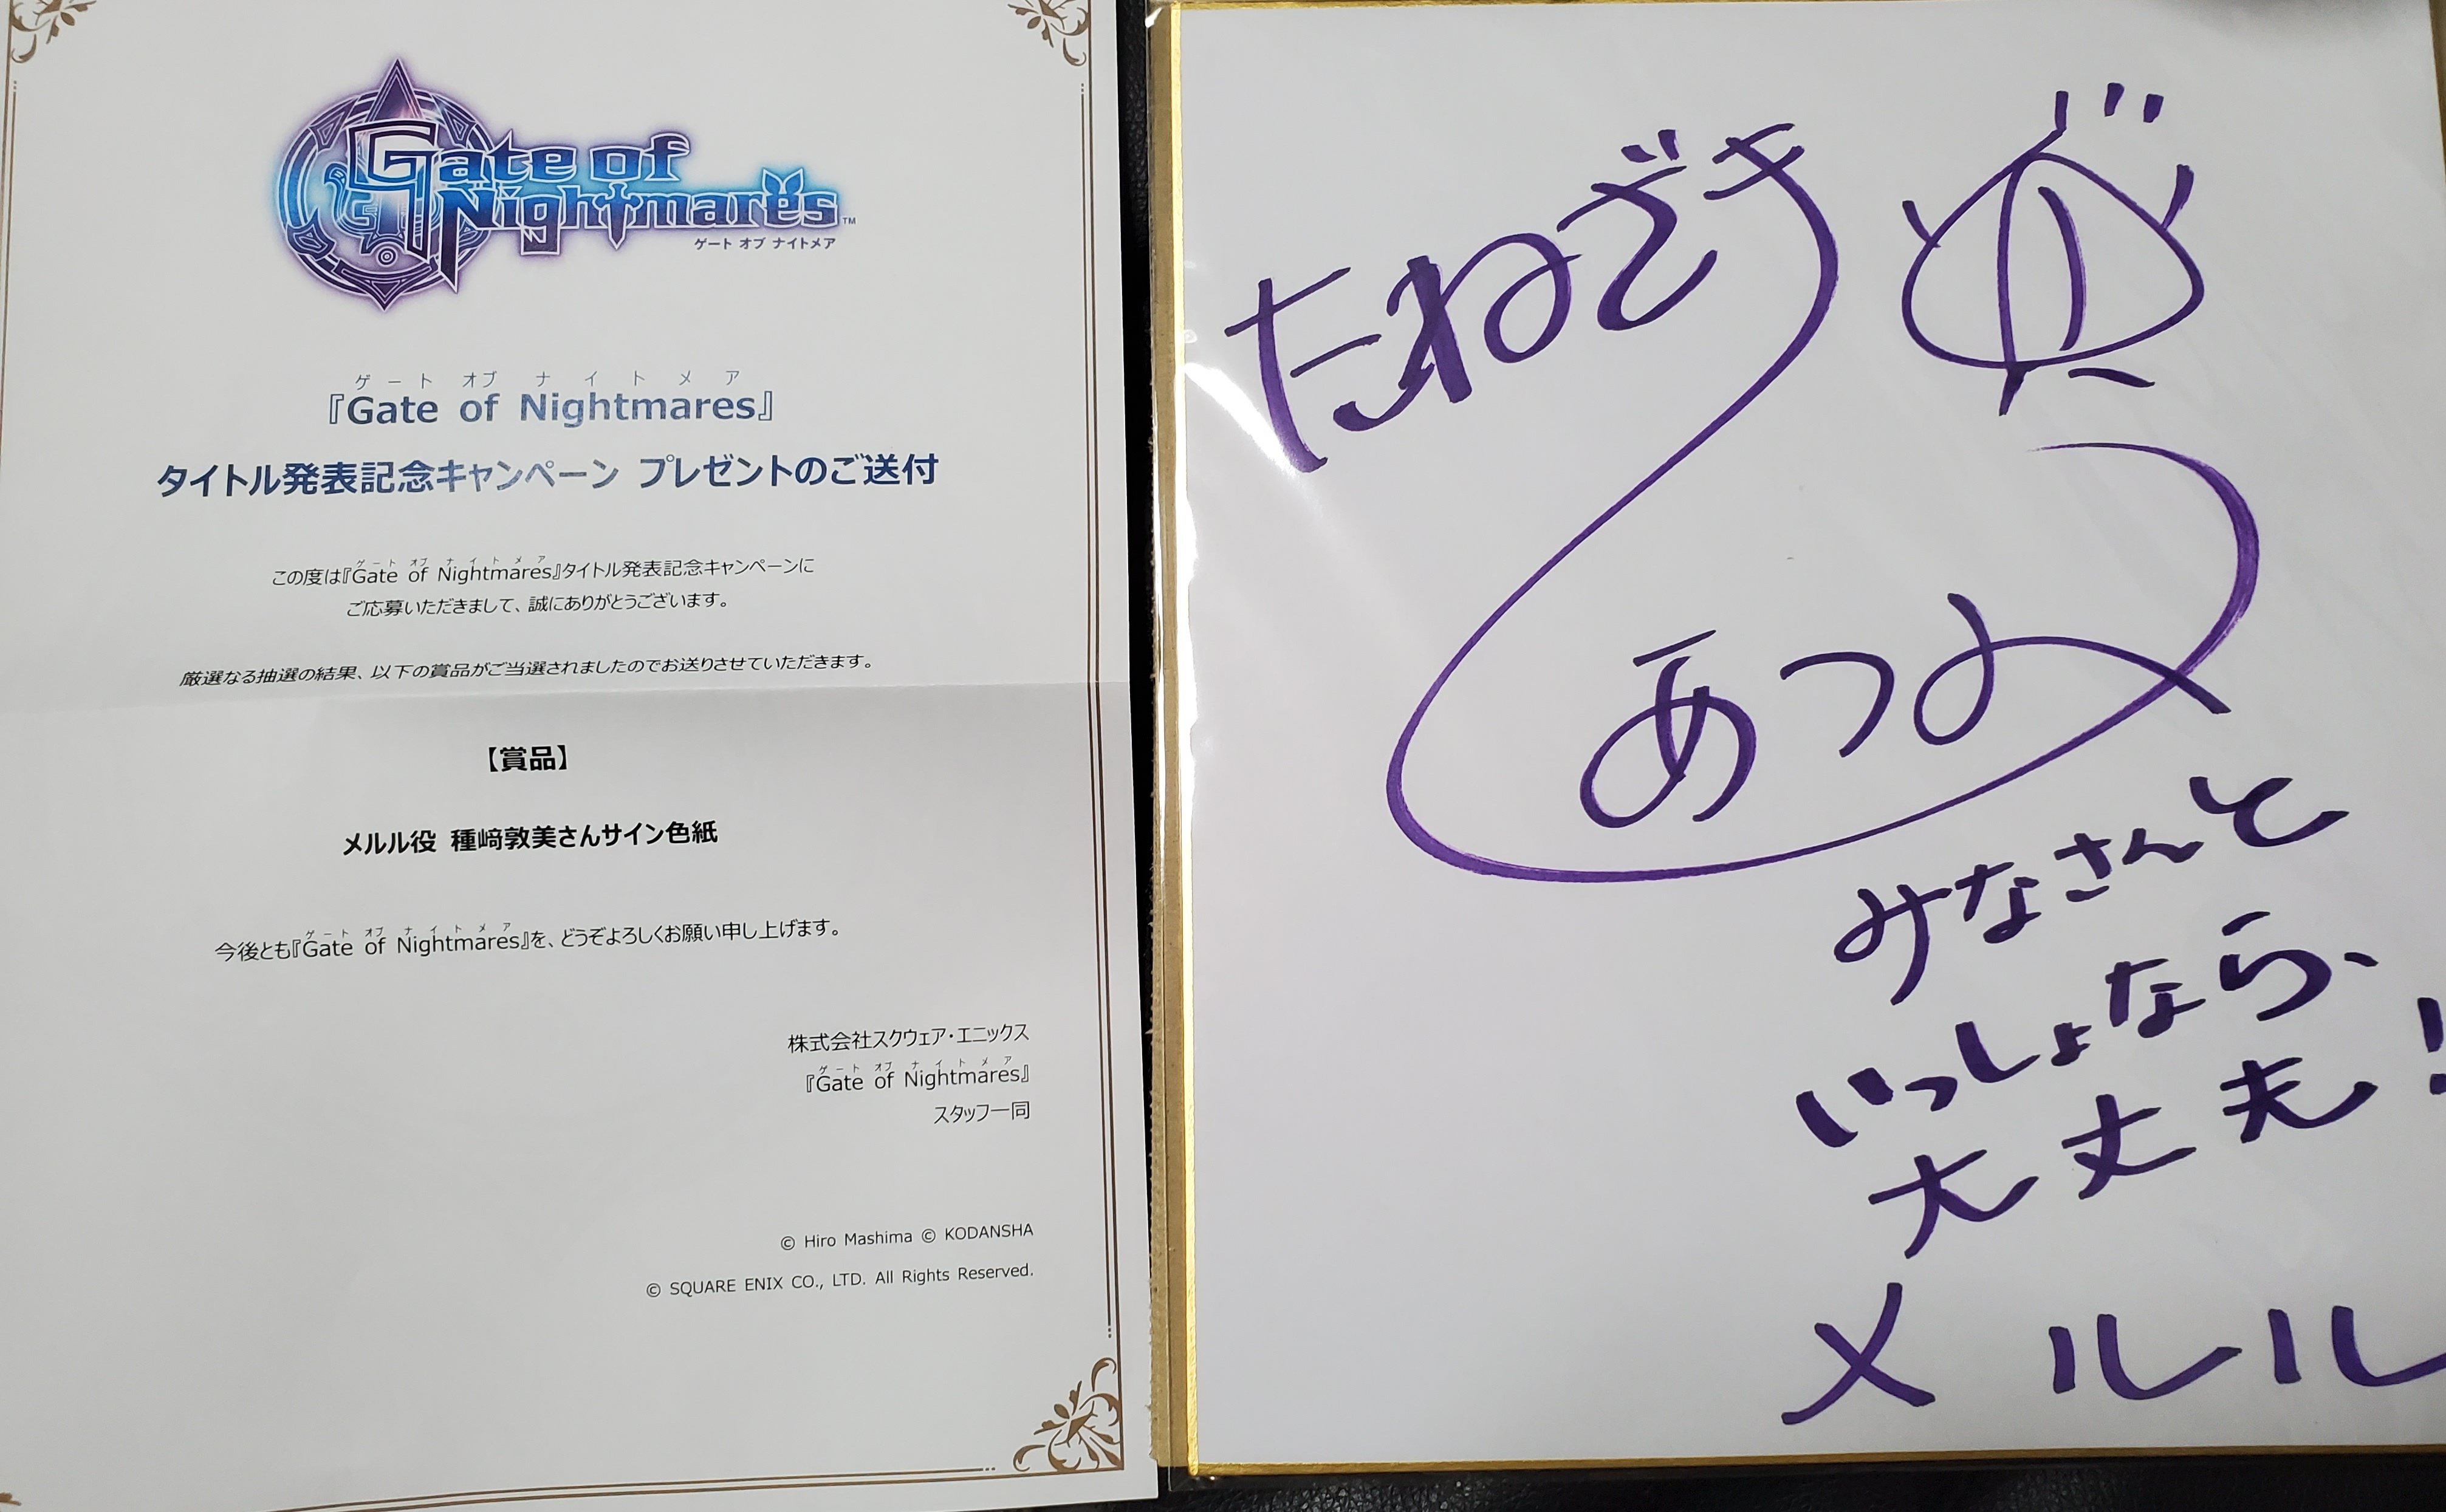 Gate of
Nightmares™
ゲート オブ ナイトメア
ゲート オブ ナイトメア
『Gate of Nightmares』
タイトル発表記念キャンペーン プレゼントのご送付
ゲート オブ ナイトメア
この度は『Gate of Nightmares』タイトル発表記念キャンペーンに
ご応募いただきまして、誠にありがとうございます。
厳選なる抽選の結果、以下の賞品がご当選されましたのでお送りさせていただきます。
【賞品】
メルル役 種﨑敦美さんサイン色紙
ゲート オブ ナイトメア
今後とも『Gate of Nightmares』を、どうぞよろしくお願い申し上げます。
株式会社スクウェア・エニックス
ゲート オブ ナイトメア
『Gate of Nightmares』
スタッフ一同
© Hiro Mashima © KODANSHA
© SQUARE ENIX CO., LTD. All Rights Reserved.
たねざき
あつみ
みなさんと
いっしょなら、
大丈夫!
メルル